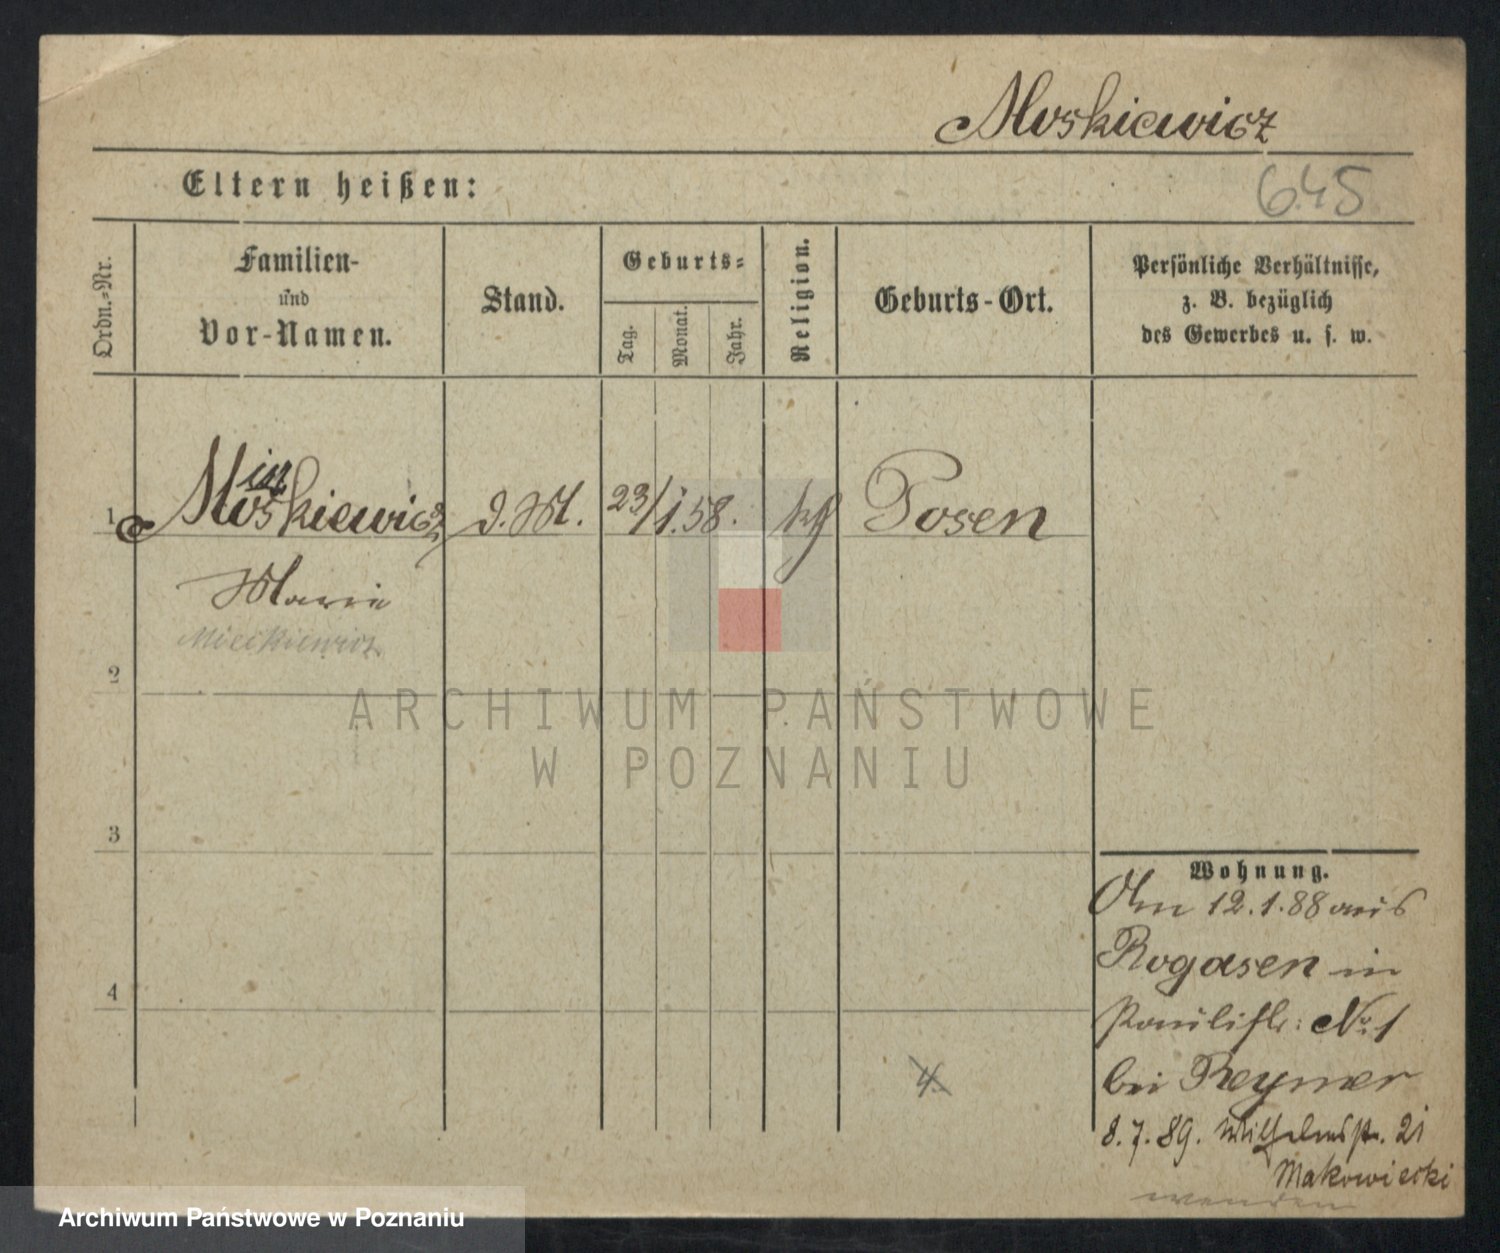 Moskiewicz
Eltern heißen:
645
Ordn.-Nr.
Familien-
und
Vor-Namen.
Stand.
Geburts-
Tag.
Monat.
Jahr.
Religion.
Geburts-Ort.
Persönliche Verhältnisse,
z. B. bezüglich
des Gewerbes u. s. w.
1
Moskiewicz
d. M.
23/1.58.
kth
Posen
Marie
Mieckiewicz
2
ARCHIWUM PAŃSTWOWE
W POZNANIU
3
Wohnung.
Am 12.1.88 aus
Rogasen in
4
Paulistr: No 1
bei Reymer
4.
8.7.89. Wilhelmstr. 21
Makowiecki
wenden
Archiwum Państwowe w Poznaniu